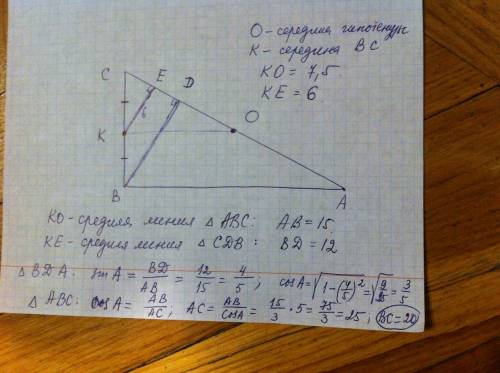 O - середина гипотенузы
K - середина BC
KO = 7,5
KE = 6
C
E
D
6
O
K
B
A
KO - средняя линия △ ABC: AB = 15
KE - средняя линия △ CDB: BD = 12
△ BDA: sin A = BD/AB = 12/15 = 4/5, cos A = √(1-(4/5)²) = √(9/25) = 3/5
△ ABC: cos A = AB/AC; AC = AB/cos A = 15/3 · 5 = 75/3 = 25; BC = 20